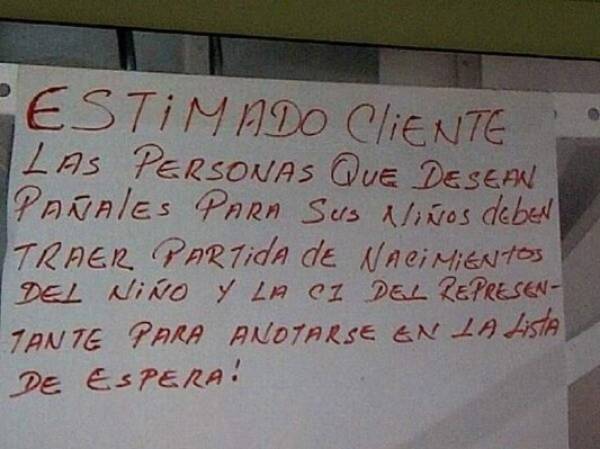 ESTiMADO CliENTE
LAS PERSONAS QUE DESEAN
PAÑAleS PARA SuS NiÑOS debEN
TRAER PARTida de NACiMiENtoS
DEL NiÑO Y LA CI DEL REPRESEN-
TANTE PARA ANOTARSE EN LA LiStA
DE ESPERA!